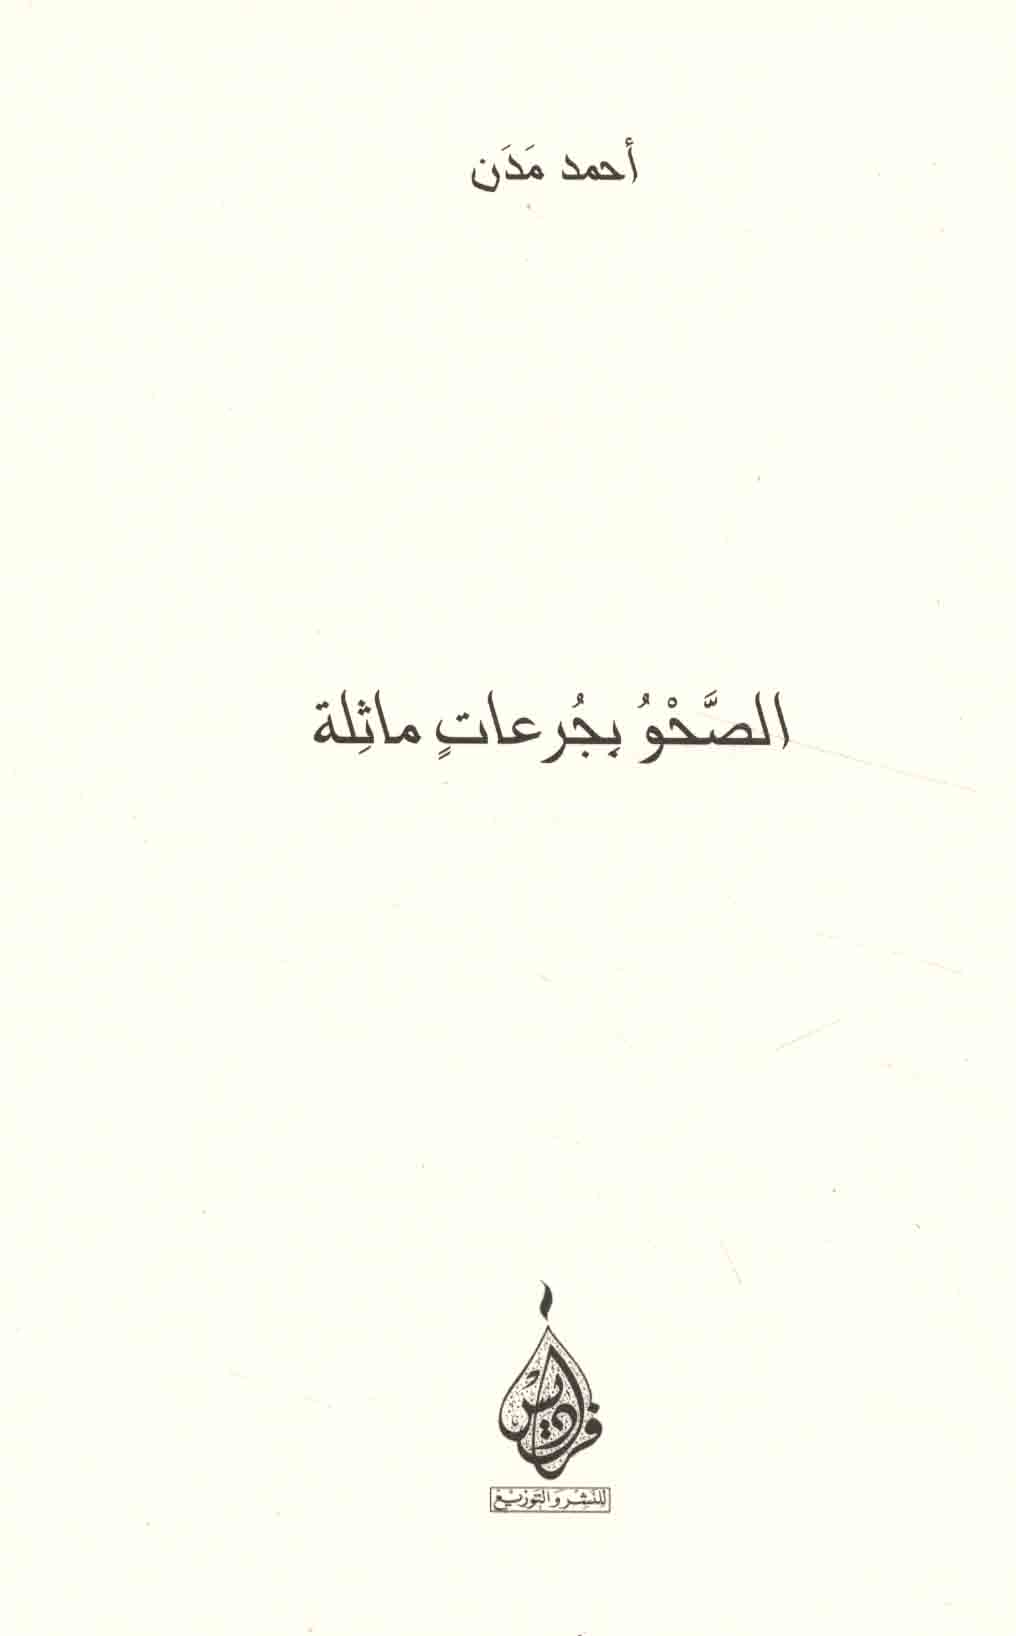 أحمد مَدَن
الصَّحْوُ بِجُرعاتٍ ماثِلة
فراديس
للنشر والتوزيع